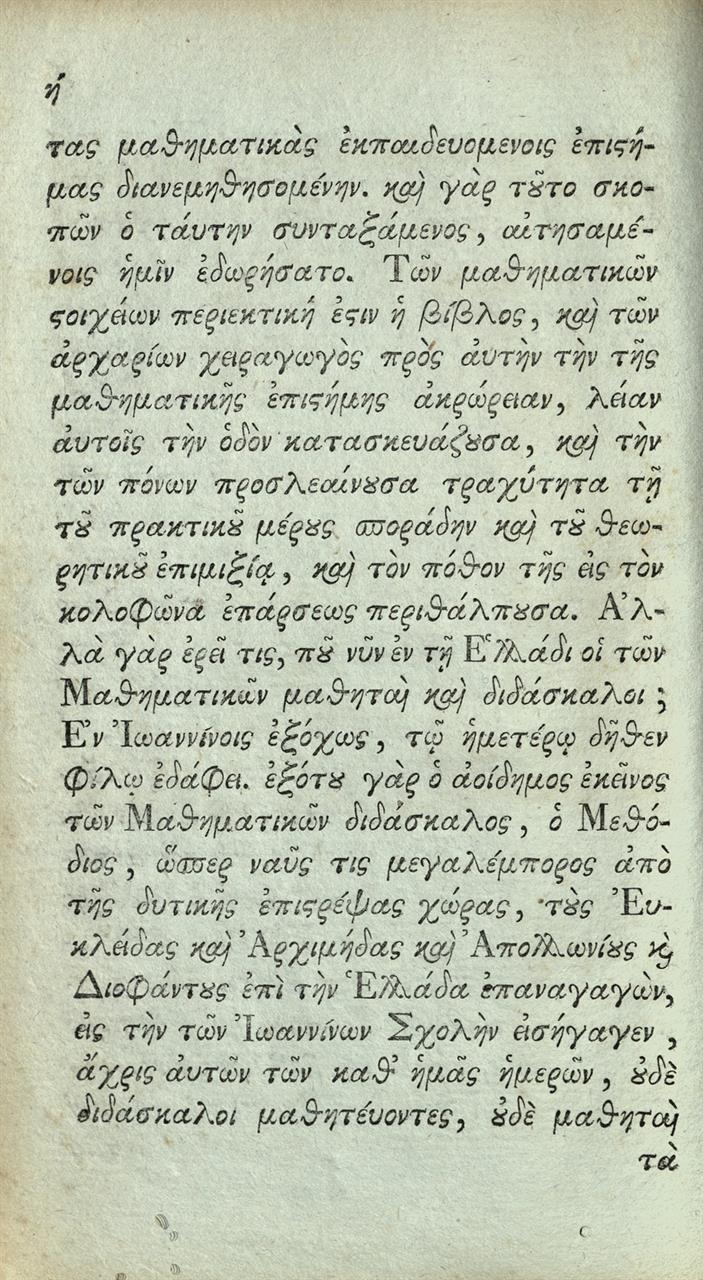 ή
τας μαθηματικὰς ἐκπαιδευομενοις ἐπιϛή-
μας διανεμηθησομένην. καὶ γὰρ τȣ͂το σκο-
πῶν ὁ τάυτην συνταξάμενος, ἀιτησαμέ-
νοις ἡμῖν ἐδωρήσατο. Τῶν μαθηματικῶν
ϛοιχέιων περιεκτική ἐϛιν ἡ βίβλος, καὶ τῶν
ἀρχαρίων χειραγωγὸς πρὸς ἀυτὴν τὴν τῆς
μαθηματικῆς ἐπιϛήμης ἀκρώρειαν, λέιαν
ἀυτοῖς τὴν ὁδὸν κατασκευάζȣσα, καὶ τὴν
τῶν πόνων προσλεαίνȣσα τραχύτητα τῇ
τȣ͂ πρακτικȣ͂ μέρȣς σποράδην καὶ τȣ͂ θεω-
ρητικȣ͂ ἐπιμιξίᾳ, καὶ τὸν πόθον τῆς ἐις τὸν
κολοφῶνα ἐπάρσεως περιθάλπȣσα. Ἀλ-
λὰ γὰρ ἐρεῖ τις, πȣ͂ νῦν ἐν τῇ Ἑλλάδι οἱ τῶν
Μαθηματικῶν μαθηταὶ καὶ διδάσκαλοι ;
Ἐν Ἰωαννίνοις ἐξόχως, τῷ ἡμετέρῳ δῆθεν
φίλῳ ἐδάφει. ἐξότȣ γὰρ ὁ ἀοίδημος ἐκεῖνος
τῶν Μαθηματικῶν διδάσκαλος, ὁ Μεθό-
διος, ὥσπερ ναῦς τις μεγαλέμπορος ἀπὸ
τῆς δυτικῆς ἐπιϛρέψας χώρας, τȣ̀ς Ἐυ-
κλέιδας καὶ Ἀρχιμήδας καὶ Ἀπολλωνίȣς ϗ̀
Διοφάντȣς ἐπὶ τὴν Ἑλλάδα ἐπαναγαγὼν,
ἐις τὴν τῶν Ἰωαννίνων Σχολὴν ἐισήγαγεν ,
ἄχρις ἀυτῶν τῶν καθ᾽ ἡμᾶς ἡμερῶν, ȣ̓δὲ
διδάσκαλοι μαθητέυοντες, ȣ̓δὲ μαθηταὶ
τὰ